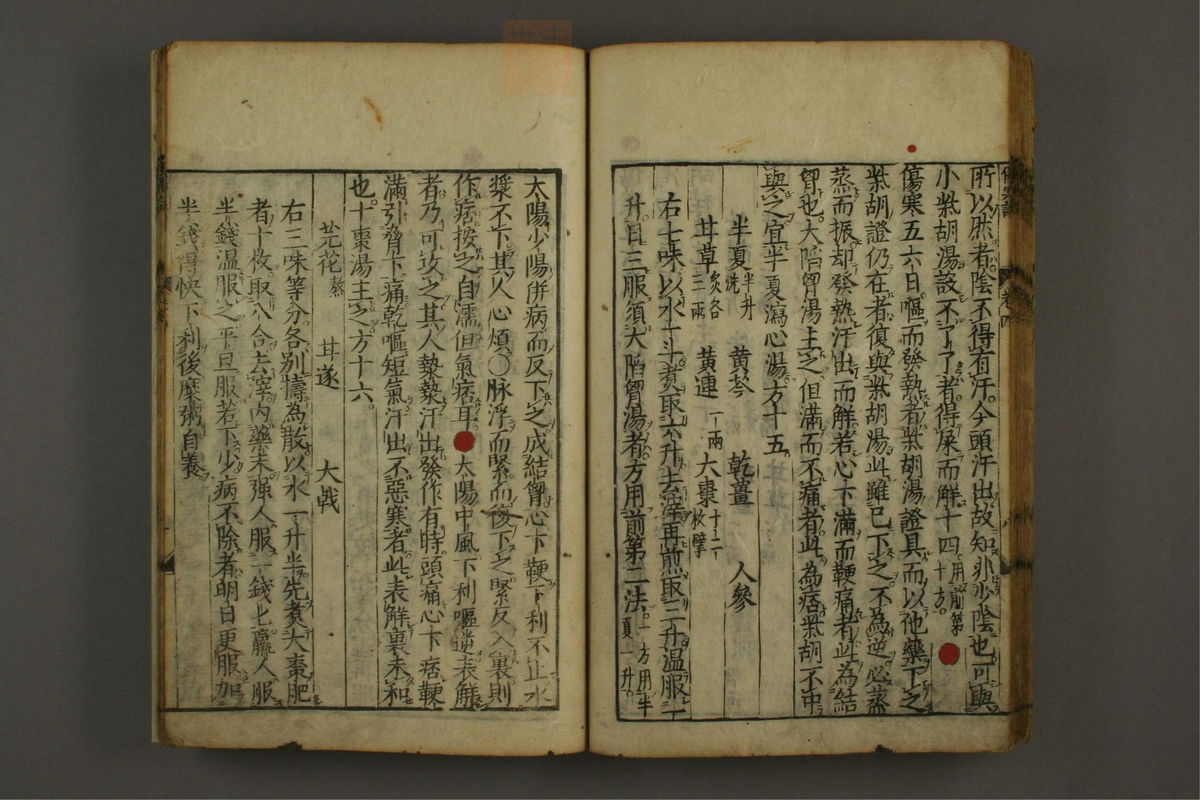 所以然者陰不得有汗今頭汗出故知非少陰也可與
小柴胡湯設不了了者得屎而解十四用前第十方
傷寒五六日嘔而發熱者柴胡湯證具而以他藥下之
柴胡證仍在者復與柴胡湯此雖已下之不為逆必蒸
蒸而振却發熱汗出而解若心下滿而鞕痛者此為結
胷也大陷胷湯主之但滿而不痛者此為痞柴胡不中
與之宜半夏瀉心湯方十五
半夏半升洗 黃芩 乾薑 人參
甘草炙各三兩 黃連一兩 大棗十二枚擘
右七味以水一斗煮取六升去滓再煎取三升温服一
升日三服須大陷胷湯者方用前第二法一方用半夏一升
太陽少陽併病而反下之成結胷心下鞕下利不止水
漿不下其人心煩○脉浮而緊而復下之緊反入裏則
作痞按之自濡但氣痞耳 太陽中風下利嘔逆表解
者乃可攻之其人漐漐汗出發作有時頭痛心下痞鞕
滿引脅下痛乾嘔短氣汗出不惡寒者此表解裏未和
也十棗湯主之方十六
芫花熬 甘遂 大戟
右三味等分各別擣為散以水一升半先煮大棗肥
者十枚取八合去滓內藥末强人服一錢匕羸人服
半錢温服之平旦服若下少病不除者明日更服加
半錢得快下利後糜粥自養